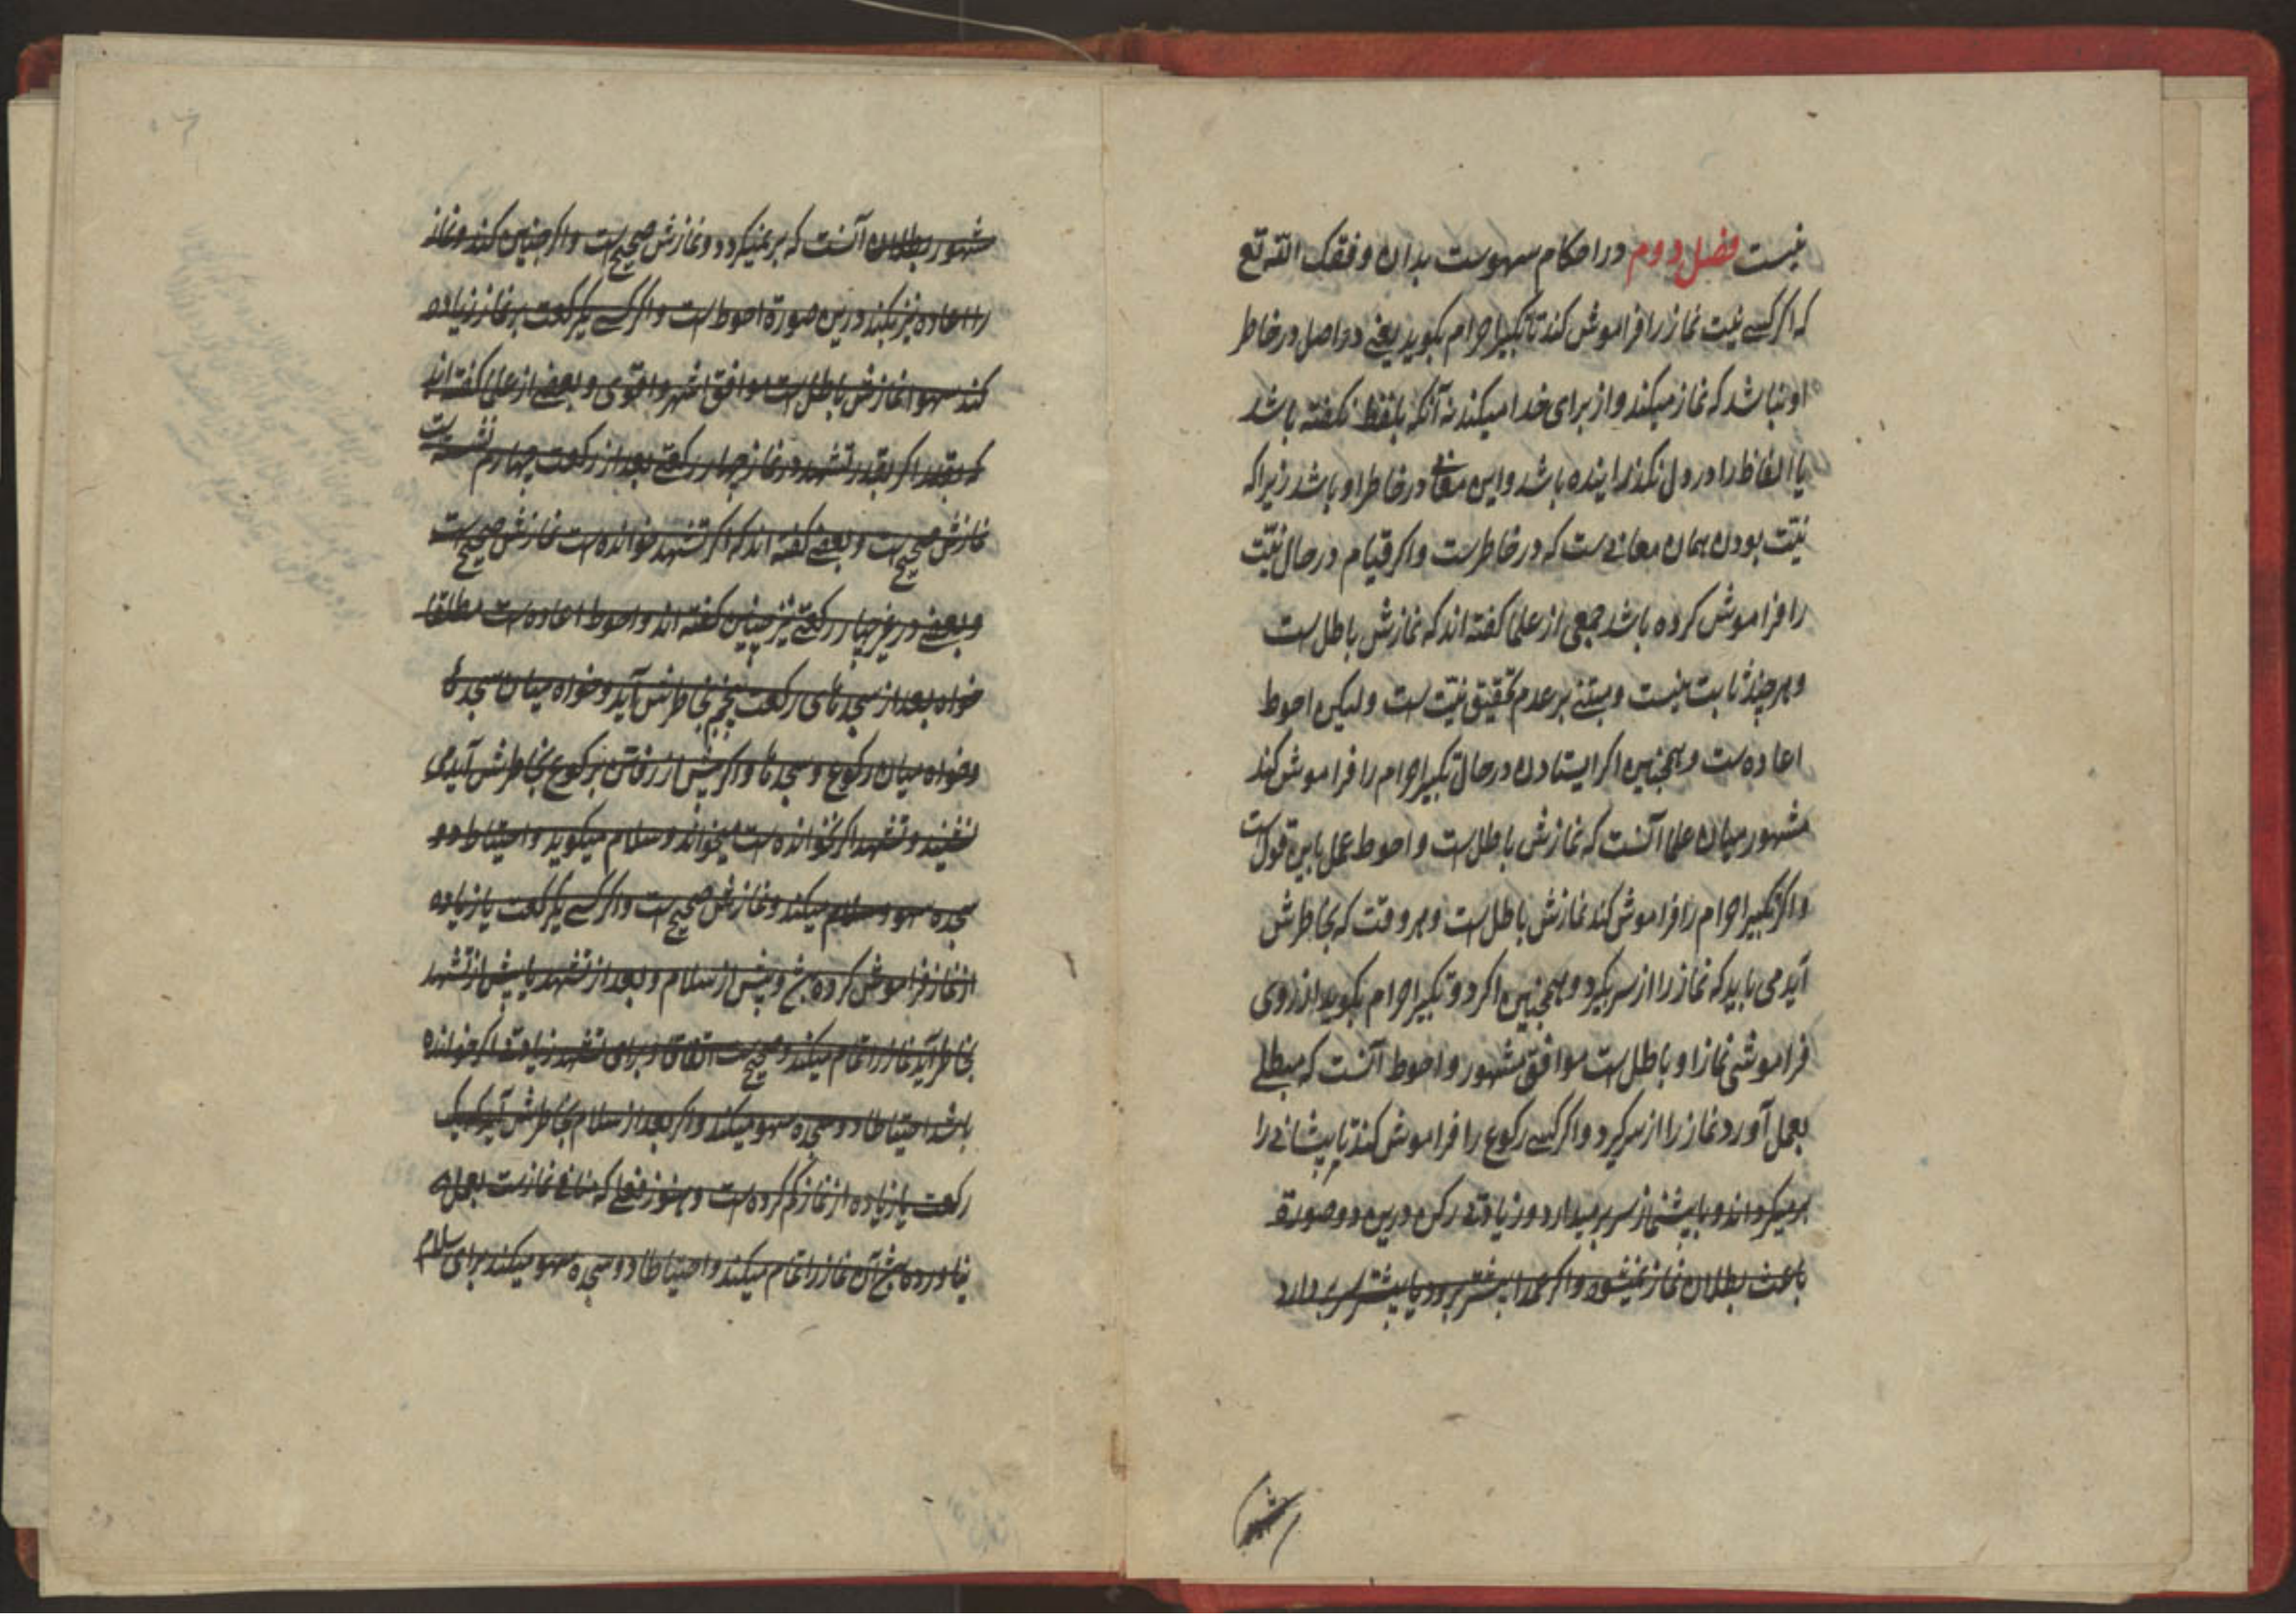 نیست فصل دوم در احکام سهوست بدان وفقک الله تع
که اگر کسی نیت نماز را فراموش کند تا تکبیر احرام بگوید یعنی در اصل در خاطر
او نباشد که نماز میکند و از برای خدا میکند نه آنکه بلفظ نگفته باشد
یا الفاظ را در دل نگذرانیده باشد و این معانی در خاطر او باشد زیرا که
نیّت بودن همان معانیست که در خاطرست و اگر قیام در حال نیّت
را فراموش کرده باشد جمعی از علما گفته اند که نمازش باطل است
و هر چند ثابت نیست و مبتنی بر عدم تحقیق نیّت است ولیکن احوط
اعاده است و همچنین اگر ایستادن در حال تکبیر احرام را فراموش کند
مشهور میان علما آنست که نمازش باطل است و احوط عمل باین قول است
و اگر تکبیر احرام را فراموش کند نمازش باطل است و هر وقت که بخاطرش
آید می باید که نماز را از سر بگیرد و همچنین اگر دو تکبیر احرام بگوید از روی
فراموشی نماز او باطل است موافق مشهور و احوط آنست که مبطلی
بعمل آورد نماز را از سر گیرد و اگر کسی رکوع را فراموش کند تا پیشانی را
برمیگرداند و با پیشنماز سر برمیدارد و زیادتی رکن درین دو صورة
باعث بطلان نماز نمیشود و اگر عمدا پیشتر برود یا پیشتر سر بردارد
مشهور
مشهور بطلان آنست که برنمیگردد و نمازش صحیح است و اگر چنین کند و نماز
را اعاده نیز بکند درین صورة احوط است و اگر کسی یکرکعت بر نماز زیاده
کند سهوا نمازش باطل است موافق اشهر و اقوی و بعضی از علما گفته اند
که اگر بقدر تشهد در نماز چهار رکعتی بعد از رکعت چهارم نشسته است
نمازش صحیح است و بعضی گفته اند که اگر تشهد خوانده است نمازش صحیح است
و بعضی در غیر چهار رکعتی نیز چنین گفته اند و احوط اعاده است مطلقا
خواه بعد از سجدهای رکعت پنجم بخاطرش آید و خواه میان سجدها
و خواه میان رکوع و سجدها و اگر پیش از رفتن برکوع بخاطرش آید می
نشیند و تشهد اگر نخوانده است میخواند و سلام میگوید و احتیاط دو
سجده سهو و سلام میکند و نمازش صحیح است و اگر کسی یکرکعت یا زیاده
از نماز فراموش کرده باشد و پیش از سلام و بعد از تشهد یا پیش از تشهد
بخاطر آید نماز را تمام میکند و صحیح است اتفاقا و برای تشهد زیادت اگر خوانده
باشد احتیاطا دو سجده سهو میکند و اگر بعد از سلام بخاطرش آید که یک
رکعت یا زیاده از نماز کم کرده است و هنوز فعلی که منافی نمازست بعمل
نیاورده باشد آن نماز را تمام میکند و احتیاطا دو سجده سهو میکند برای سلام